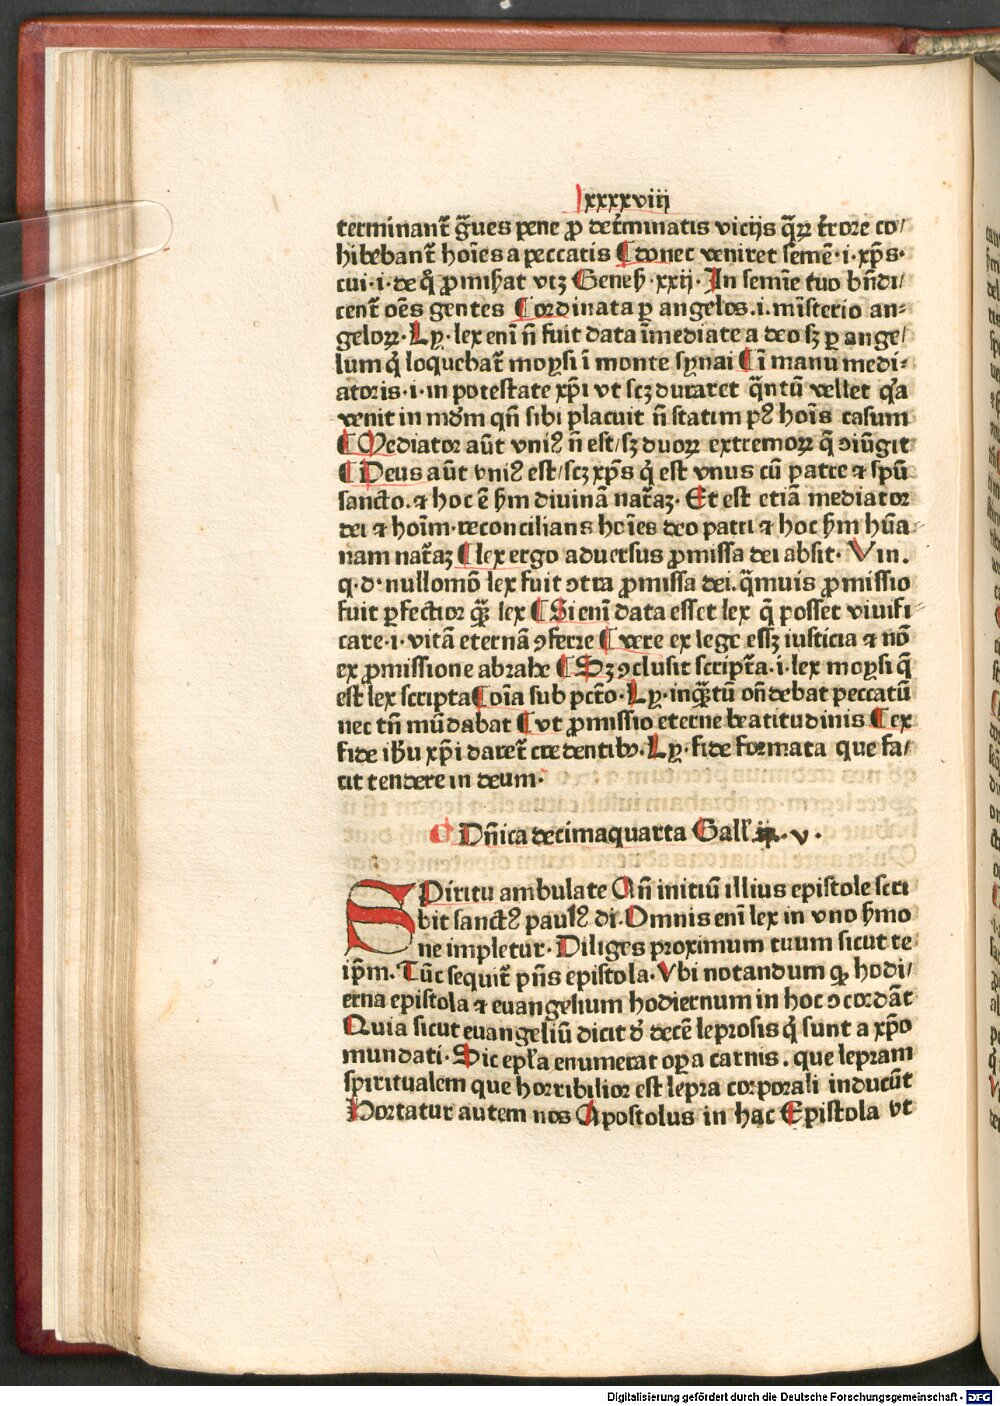 lxxxxviii
terminant᷑ g̃ues pene ꝓ det᷑minatis vicijs q̃ꝝ t᷑rore co/
hibebant᷑ hoīes a peccatis ¶ donec veniret semē·i·xp̄s·
cui·i·de q̊ ꝓmiserat vtꝫ Geneſ·xxij·In semīe tuo bn̄di/
cent᷑ oēs gentes ¶ ordinata ꝑ angelos.i.mīsterio an⸗
geloꝝ·Ly·lex enī n̄ fuit data īmediate a deo sꝫ ꝑ ange/
lum q̇ loquebat᷑ moysi ī monte synai ¶ ī manu medi⸗
atoris·i·in potestate xp̄i vt scꝫ duraret q̄ntū vellet q̇a
venit in mūdm qn̄ sibi placuit n̄ statim pꝰ hoīs casum
¶ Mediator aūt vniꝰ n̄ est/sꝫ duoꝝ extremoꝝ q̄ ꝯiūgit
¶ Deus aūt vniꝰ est/scꝫ xp̄s q̇ est vnus cū patre ⁊ spū
sancto.⁊ hoc ē ẜm diuinā nat᷑aꝫ·Et est etiā mediator
dei ⁊ hoīm·reconcilians hoīes deo patri ⁊ hoc ẜm hūa⸗
nam nat᷑aꝫ ¶ lex ergo aduersus ꝓmissa dei absit·Vin.
q·d·nullomō lex fuit ꝯtra ꝓmissa dei.q̄muis ꝓmissio
fuit ꝑfectior q̄ꝫ lex ¶ Si enī data esset lex q̄ posset viuifi⸗
care·i·vitā eternā ꝯferre ¶ vere ex lege essꝫ iusticia ⁊ nō
ex ꝓmissione abrahe ¶ Sꝫ ꝯclusit script᷑a·i·lex moysi q̄
est lex scripta ¶ oīa sub pctō·Ly·inq̄ꝫtū on̄debat peccatū
nec tn̄ mūdabat ¶ vt ꝓmissio eterne beatitudinis ¶ ex
fide ihū xp̄i daret᷑ credentibꝰ.Ly·fide formata que fa/
cit tendere in deum·
¶ Dn̄ica decimaquarta Gall̓ ·v·
SPiritu ambulate Qn̄ initiū illius epistole scri
bit sanctꝰ paulꝰ di·Omnis enī lex in vno ẜmo
ne impletur·Diliges proximum tuum sicut te
ip̄m·Tūc sequit᷑ pn̄s epistola·Vbi notandum qꝫ hodi/
erna epistola ⁊ euangelium hodiernum in hoc ꝯcordāt
Quia sicut euangeliū dicit ꝺ̄ decē leprosis q̇ sunt a xp̄o
mundati·Sic ep̄la enumerat oꝑa carnis.que lepram
spiritualem que horribilior est lepra corporali inducūt
Hortatur autem nos Apostolus in hac Epistola vt
Digitalisierung gefördert durch die Deutsche Forschungsgemeinschaft - DFG